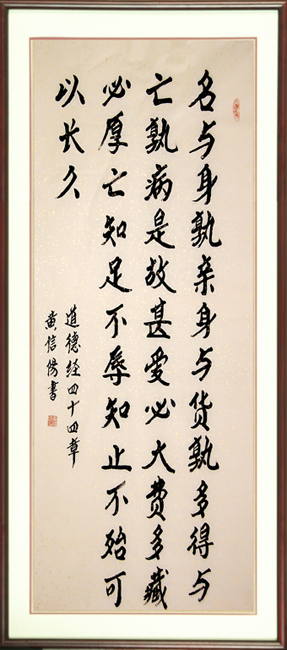 名与身孰亲身与货孰多得与
亡孰病是故甚爱必大费多藏
必厚亡知足不辱知止不殆可
以长久
道德经四十四章
黄信书